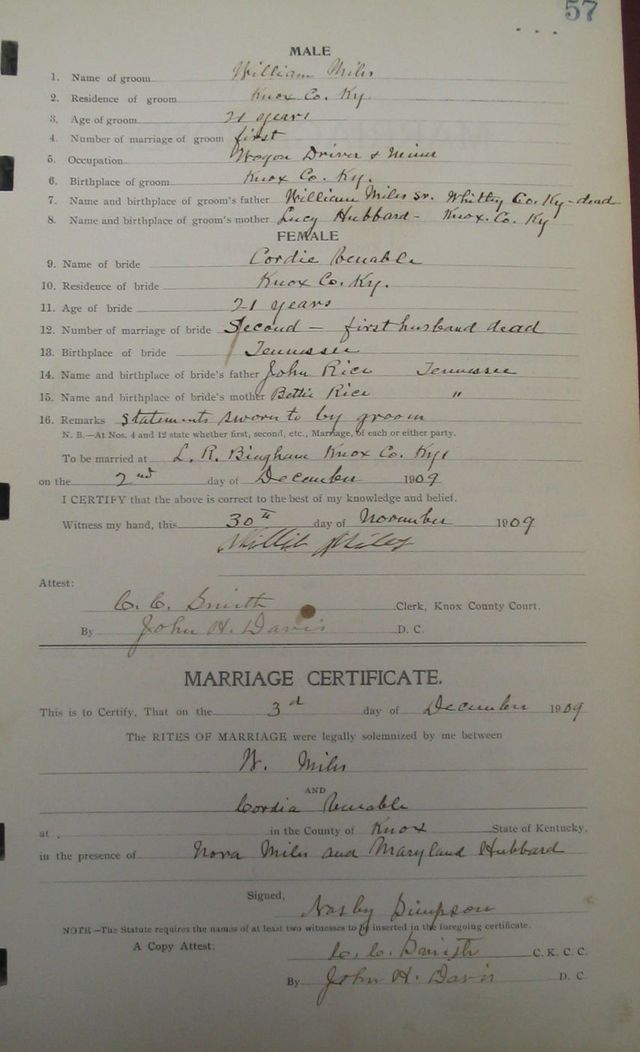 57
MALE
1. Name of groom William Miles
2. Residence of groom Knox Co. Ky.
3. Age of groom 21 years
4. Number of marriage of groom first
5. Occupation Wagon Driver & Miner
6. Birthplace of groom Knox Co. Ky.
7. Name and birthplace of groom's father William Miles Sr. Whitley Co. Ky-dead
8. Name and birthplace of groom's mother Lucy Hubbard - Knox. Co. Ky
FEMALE
9. Name of bride Cordie Venable
10. Residence of bride Knox Co. Ky.
11. Age of bride 21 years
12. Number of marriage of bride Second - first husband dead
13. Birthplace of bride Tennessee
14. Name and birthplace of bride's father John Rice Tennessee
15. Name and birthplace of bride's mother Bettie Rice "
16. Remarks Statements sworn to by groom
N. B.—At Nos. 4 and 12 state whether first, second, etc., Marriage, of each or either party.
To be married at L. R. Bingham Knox Co. Ky
on the 2nd day of December 1909
I CERTIFY that the above is correct to the best of my knowledge and belief.
Witness my hand, this 30th day of November 1909
Willie Miles
Attest:
C. C. Smith Clerk, Knox County Court.
By John H. Davis D. C.
MARRIAGE CERTIFICATE.
This is to Certify, That on the 3d day of December 1909
The RITES OF MARRIAGE were legally solemnized by me between
W. Miles
AND
Cordia Venable
at . in the County of Knox State of Kentucky,
in the presence of Nora Miles and Maryland Hubbard
Signed,
Nasby Simpson
NOTE—The Statute requires the names of at least two witnesses to be inserted in the foregoing certificate.
A Copy Attest: C. C. Smith C. K. C. C.
By John H. Davis D. C.